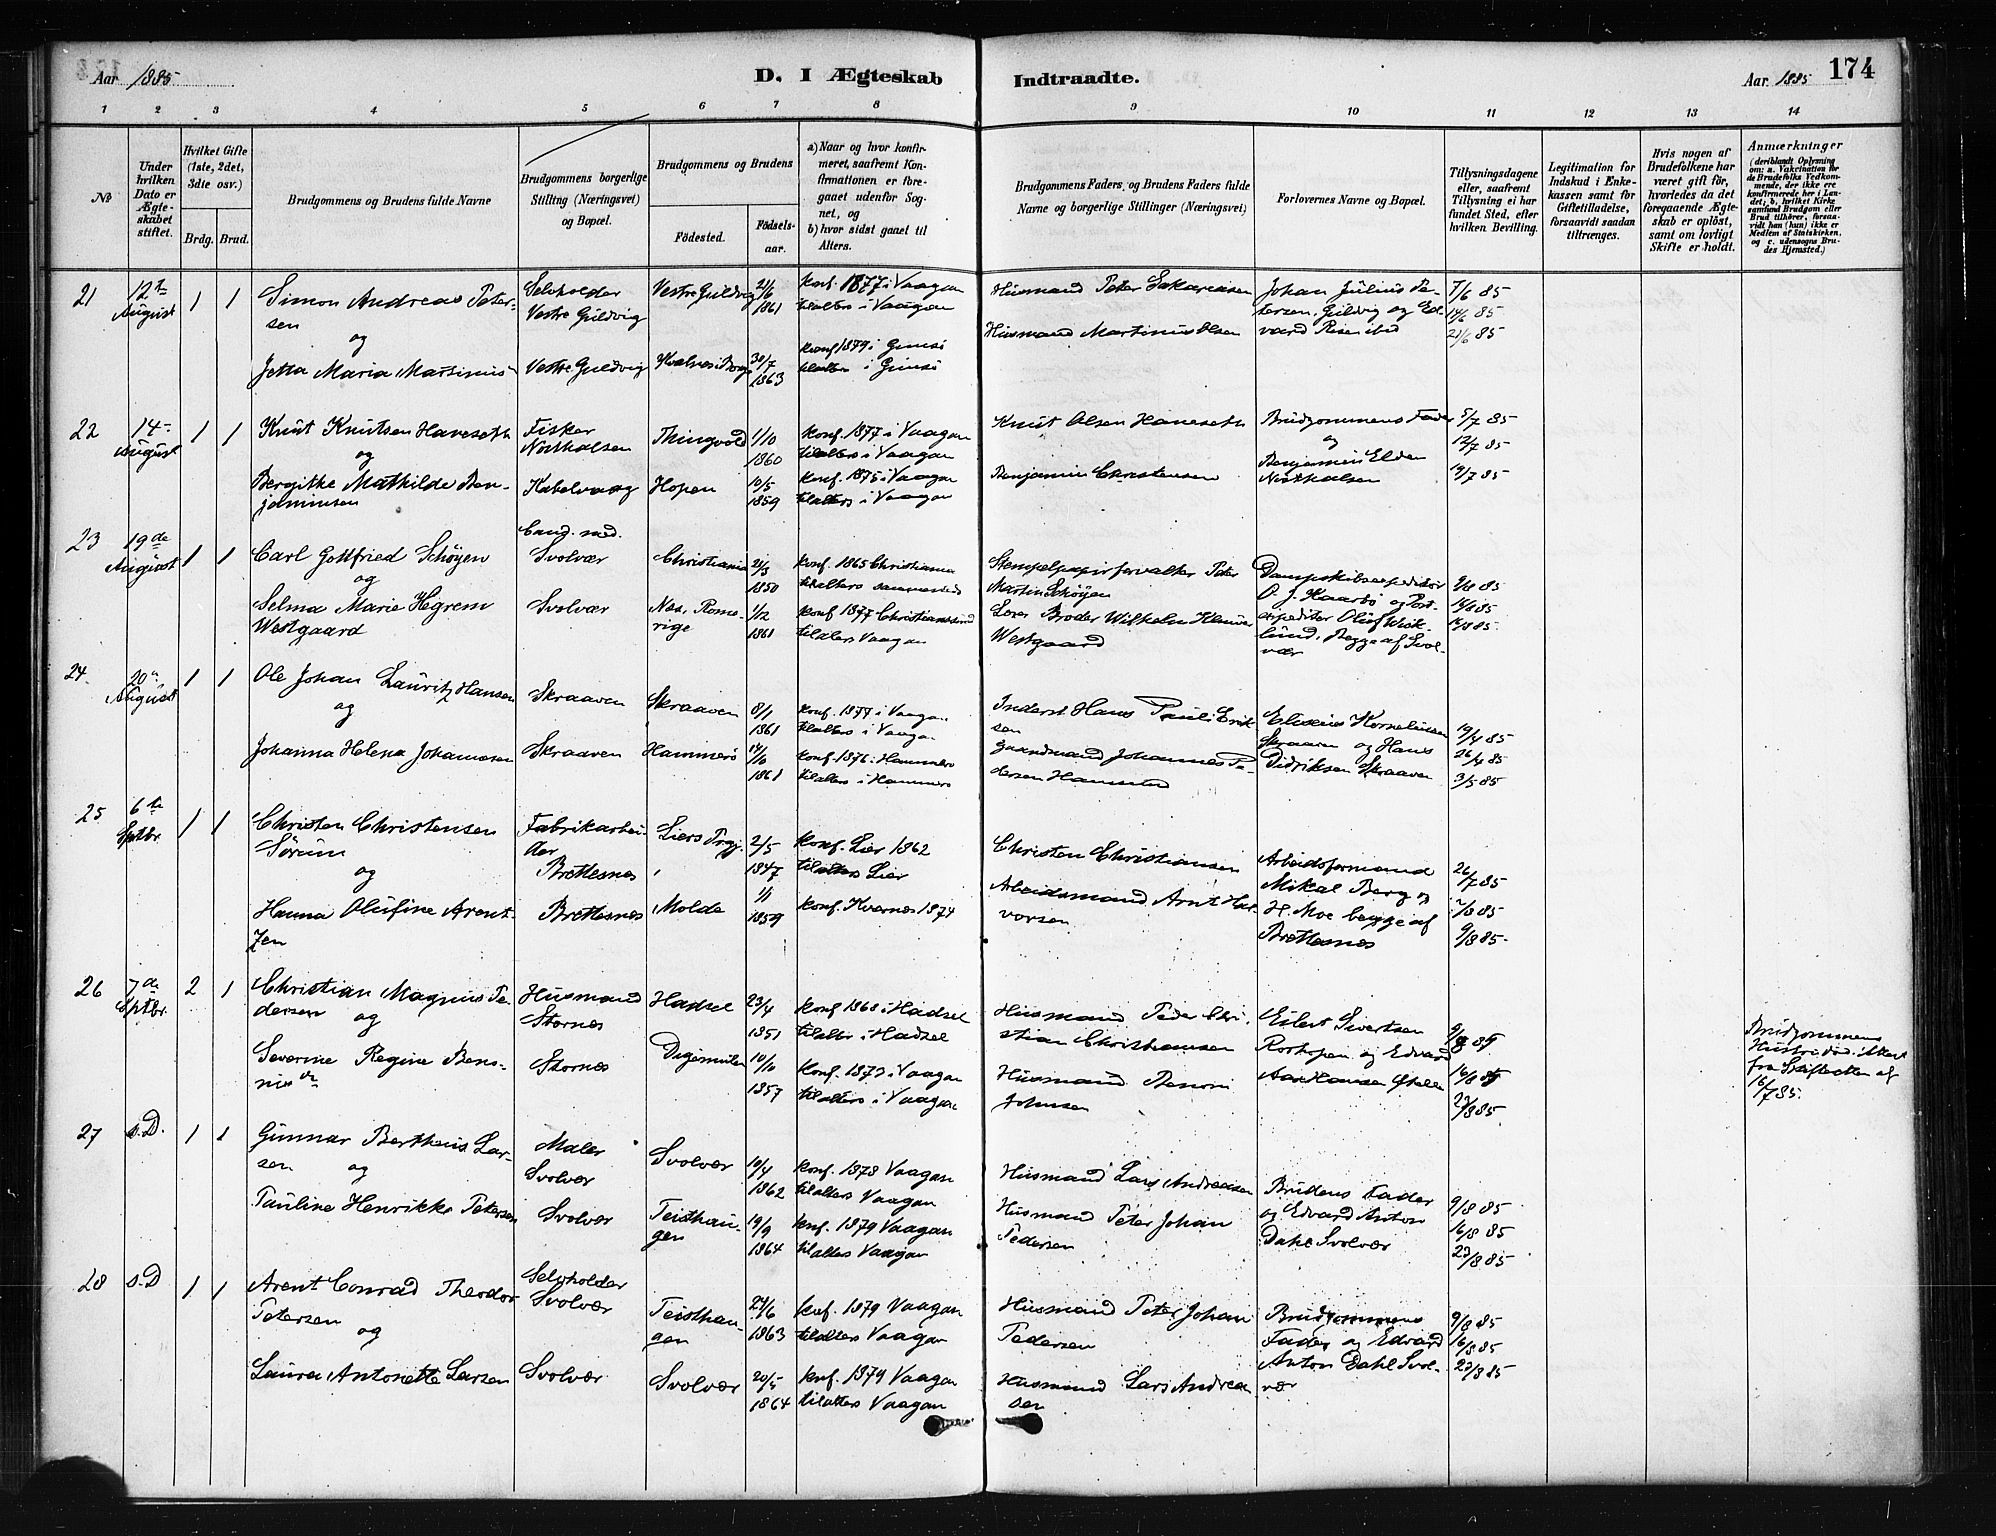 Aar 1885
D. I Ægteskab Indtraadte.
Aar 1885 174
1 2 3 4 5 6 7 8 9 10 11 12 13 14
№
Under hvilken Dato er Ægteskabet stiftet.
Hvilket Gifte (1ste, 2det, 3die osv.)
Brdg. Brud.
Brudgommens og Brudens fulde Navne
Brudgommens borgerlige Stilling (Næringsvei) og Bopæl.
Brudgommens og Brudens
Fødested. Fødselsaar.
a) Naar og hvor konfirmeret, saafremt Konfirmationen er foregaaet udenfor Sognet, og
b) hvor sidst gaaet til Alters.
Brudgommens Faders, og Brudens Faders fulde Navne og borgerlige Stillinger (Næringsvei)
Forlovernes Navne og Bopæl.
Tillysningsdagene eller, saafremt Tillysning ei har fundet Sted, efter hvilken Bevilling.
Legitimation for Indskud i Enkekassen samt for Giftetilladelse, forsaavidt saadan tiltrænges.
Hvis nogen af Brudefolkene har været gift før, hvorledes da det foregaaende Ægteskab er opløst, samt om lovligt Skifte er holdt.
Anmærkninger
(deriblandt Oplysning om: a. Vakcination for de Brudefolks Vedkommende, der ikke ere konfirmerede her i Landet; b. hvilket Kirkesamfund Brudgom eller Brud tilhører, forsaavidt han (hun) ikke er Medlem af Statskirken, og c. udensogns Brudes Hjemsted.)
21 12te August 1 1
Simon Andreas Petersen
og
Jetta Maria Martinius
Selvholder
Vestre Guldvig
Vestre Guldvig
Vestre Guldvig 21/6 1861
30/7 1863
konf. 1877 i Vaagan
til alters i Vaagan
konf 1879 i Gimsø
til alters i Gimsø
Husmand Peter Sakariasen
Husmand Martinus Olsen
Johan Julius Petersen, Guldvig og Edvard
7/6 85
14/6 85
21/6 85
22 14de August 1 1
Knut Knutsen Haveseth
og
Bergitke Mathilde Benjaminsen
Fisker
Kabelvaag
Thingvold 1/10 1860
Hopen 10/5 1859
konf. 1877 i Vaagan
til alters i Vaagan
konf. 1875 i Vaagan
til alters i Vaagan
Knut Olsen Haveseth
Benjamin Christensen
Brudgommens Fader
og
Benjamin Elden
5/7 85
12/7 85
19/7 85
23 19de August 1 1
Carl Gottfried Schøyen
og
Selma Marie Hegrem
Westgaard
Cand. med.
Svolvær
Svolvær
Christiania 1850
Nes, Romerige 1/12 1861
konf. 1865 Christiania
til alters sammesteds
konf. 1877 Christianssund
til alters Vaagan
Stempelpapirforvalter Peter
Martin Schøyen
Broder Wilhelm
Westgaard
Dampskibsexpeditør
O. J. Kaarbø og Postexpeditør Olaf Wiklund, Begge af Svolvær
2/8 85
9/8 85
16/8 85
24. 20de August 1 1
Ole Johan Lauritz Hansen
og
Johanna Helena Johannesen
Skraaven
Skraaven
Skraaven 8/1 1861
Hammerø 14/10 1861
konf. 1877 i Vaagan
til alters i Vaagan
konf. 1876 i Hammerø
til alters i Hammerø
Inderst Hans Pauli Eriksen
Gaardmand Johannes Pedersen
Eliseus Kornelius
Skraaven og Hans
Didriksen Skraaven
19/4 85
26/4 85
3/5 85
25 6te Sptbr. 1 1
Christen Christensen
Sørum
og
Hanna Olufine Arentzen
Fabrikarbeider
Brettesnes
Brettesnes
Liers Prgj. 2/5 1847
Molde 1/1 1859
konf. Lier 1862
til alters Lier
konf. Kvernes 1874
Christen Christiansen
Arbeidsmand Arnt Halvorsen
Arbeidsformand
Mikal Berg og
H. Moe begge af
Brettesnes
26/7 85
2/8 85
9/8 85
26 7de Sptbr. 2 1
Christian Magnus Pedersen
og
Severine Regine Benonisdr
Husmand
Stornes
Stornes
Hadsel 23/4 1851
Digermulen 10/10 1857
konf 1868 i Hadsel
til alters i Hadsel
konf. 1873 i Vaagan
til alters i Vaagan
Husmand Peder Christian Christiansen
Husmand Benoni
Johnsen
Eilert Sivertsen
Rorhopen og Edvard
9/8 85
16/8 85
23/8 85
Brudgommens
Hustru død. Attest
fra Skifteretten af
16/7 85.
27 s. D. 1 1
Gunnar Bertheus Larsen
og
Pauline Henrikke Petersen
Maler
Svolvær
Svolvær
Svolvær 10/4 1862
Teisthaugen 19/9 1864
konf. 1878 Vaagan
til alters Vaagan
konf. 1879 Vaagan
til alters Vaagan
Husmand Lars Andreasen
Husmand Peter Johan
Pedersen
Brudens Fader
og Edvard Anton
Dahl Svolvær
9/8 85
16/8 85
23/8 85
28 s. D 1 1
Arent Conrad Theodor
Petersen
og
Laura Antonette Larsen
Selvholder
Svolvær
Svolvær
Teisthaugen 24/6 1863
Svolvær 20/5 1864
konf. 1879 Vaagan
til alters Vaagan
konf. 1879 Vaagan
til alters Vaagan
Husmand Peter Johan
Pedersen
Husmand Lars Andreasen
Brudgommens
Fader og Edvard
Anton Dahl Svolvær
9/8 85
16/8 85
23/8 85